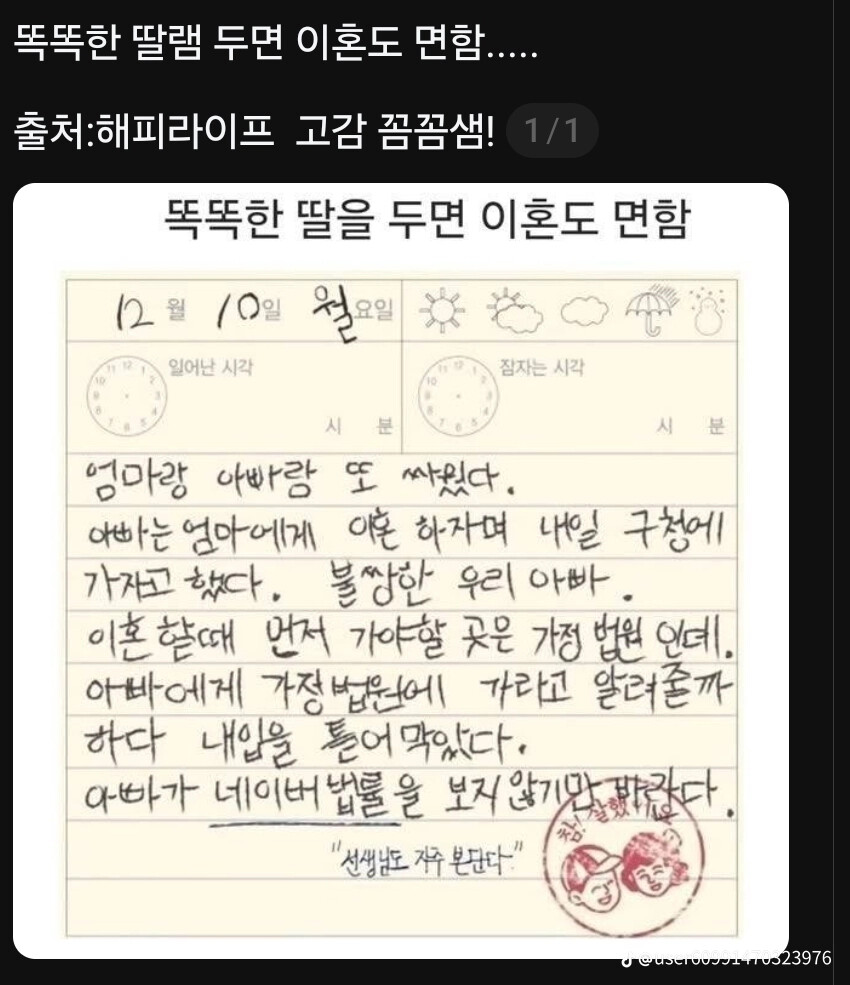 똑똑한 딸램 두면 이혼도 면함.....
출처:해피라이프 고감 꼼꼼샘! 1/1
똑똑한 딸을 두면 이혼도 면함
12월 10일 월요일
일어난 시각 잠자는 시각
시 분 시 분
엄마랑 아빠람 또 싸웠다.
아빠는 엄마에게 이혼 하자며 내일 구청에
가자고 했다. 불쌍한 우리 아빠.
이혼 할때 먼저 가야할 곳은 가정 법원 인데.
아빠에게 가정법원에 가라고 알려줄까
하다 내입을 틀어막았다.
아빠가 네이버 법률을 보지 않기만 바란다.
참! 잘했어요
"선생님도 자주 본단다"
@user60991470323976